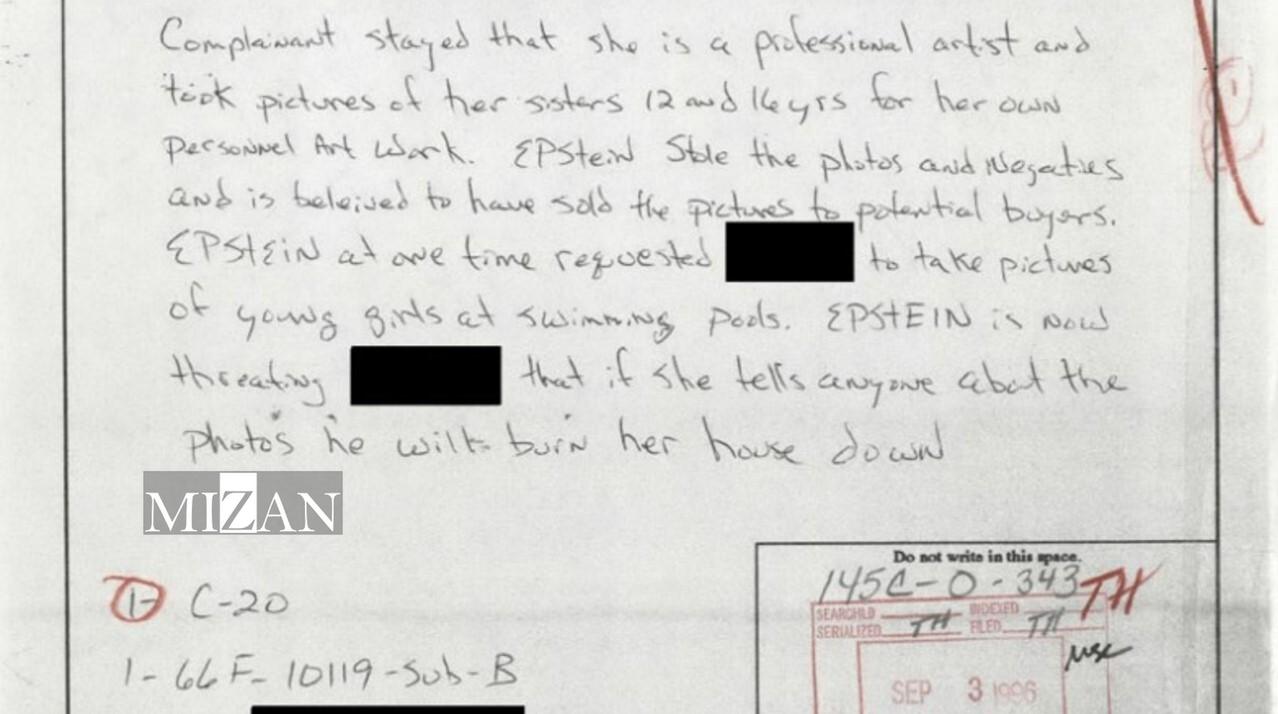 Complainant stayed that she is a professional artist and
took pictures of her sisters 12 and 16 yrs for her own
personnel Art Work. EPStein Stole the photos and Negaties
and is beleived to have sold the pictures to potential buyers.
EPStEiN at one time requested to take pictures
of young girls at swimming pools. EPStEIN is now
threating that if she tells anyone abot the
photos he will burn her house down
MIZAN
1- C-20
1-66F-10119-Sub-B
Do not write in this space.
145C-0-343
TH
SEARCHED TH INDEXED
SERIALIZED FILED TH
SEP 3 1996